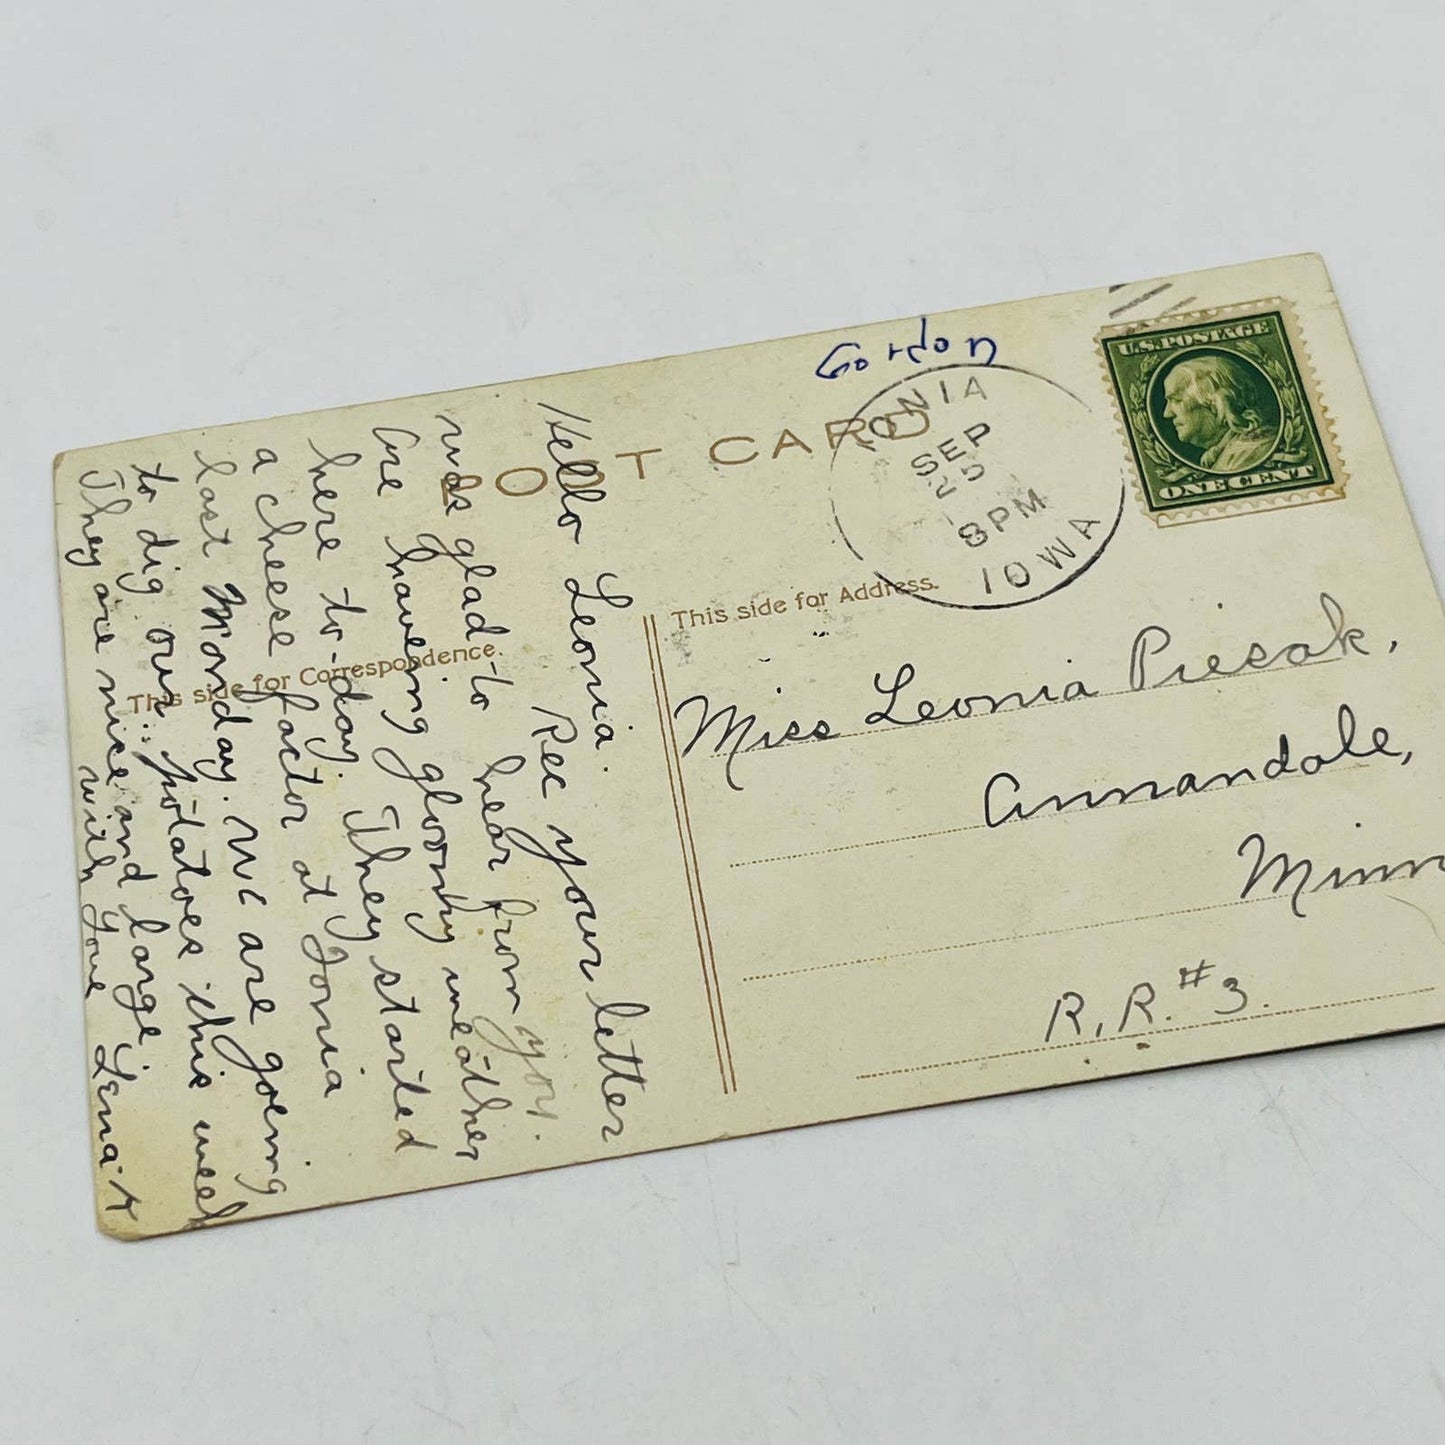 Gordon
POST CARD
IONIA
SEP
25
8PM
IOWA
U.S. POSTAGE
ONE CENT
This side for Correspondence.
This side for Address.
Hello Leonia.
Rec your letter
was glad to hear from you.
Are having gloomy weather
here to-day. They started
a cheese factor at Ionia
last Monday. We are going
to dig our potatoes this week
They are nice and large.
with love Lena
Miss Leonia Piesak,
Annandale,
Minn
R.R. #3.